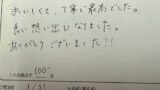 おいしくて、丁寧で最高でした。
良い思い出になりました。
ありがとうございました!!
100!